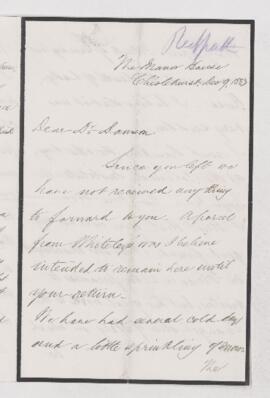 The Manor House
Chislehurst Dec 9, 1883
Dear Dr
Since you left we
have not received any thing
to forward to you. A parcel
from was I believe
intended to remain here until
your return.
We have had several cold days
and a little sprinkling of snow
The